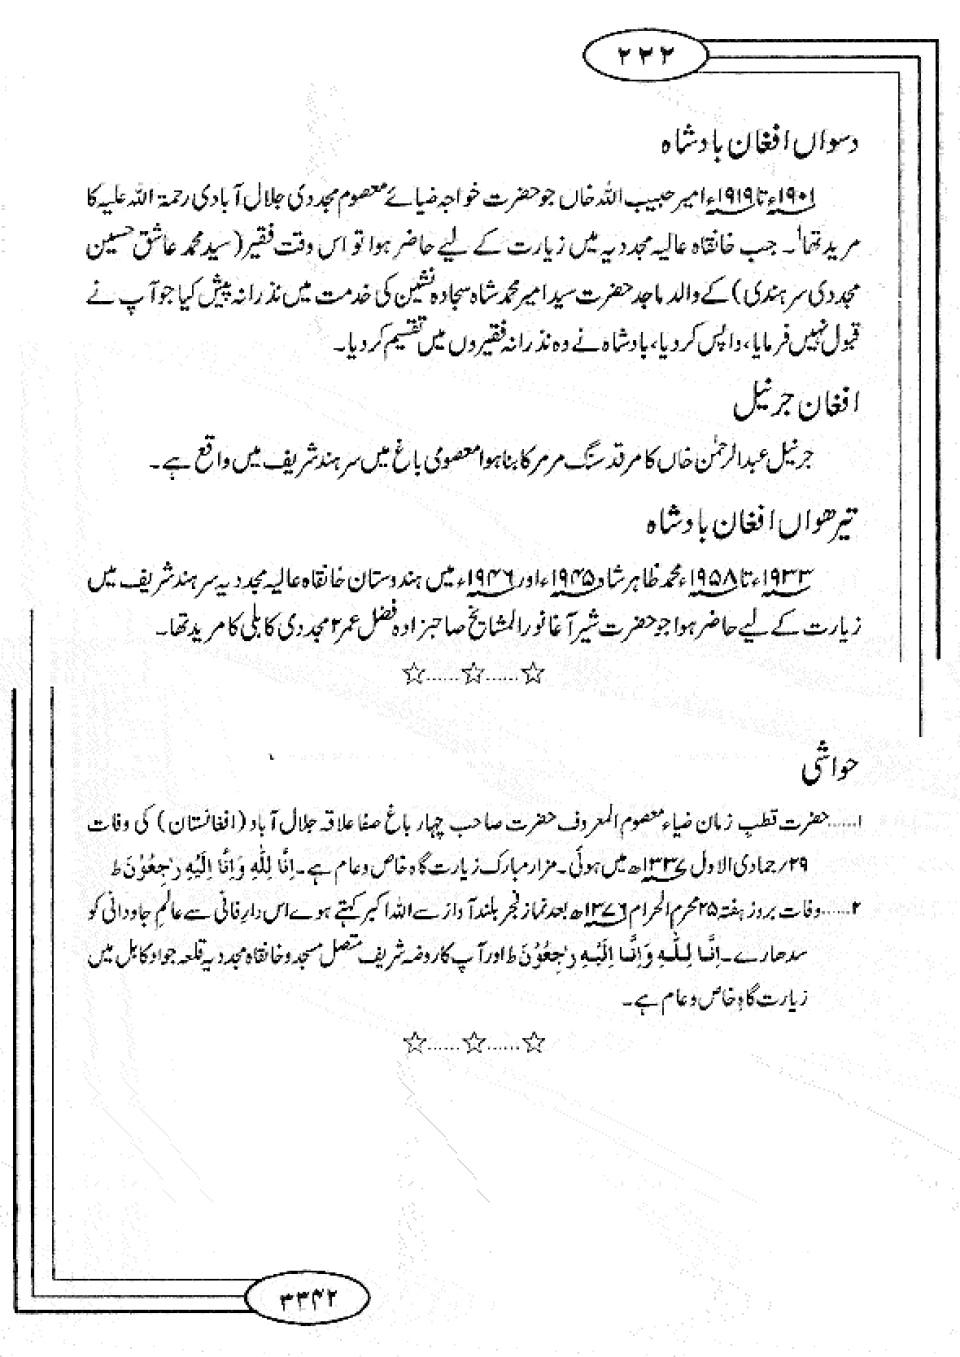 ۲۲۲
دسواں افغان بادشاہ
۱۹۰۱ء تا ۱۹۱۹ء امیر حبیب اللہ خاں جو حضرت خواجہ ضیائے معصوم مجددی جلال آبادی رحمۃ اللہ علیہ کا
مرید تھا۱۔ جب خانقاہ عالیہ مجددیہ میں زیارت کے لیے حاضر ہوا تو اس وقت فقیر (سید محمد عاشق حسین
مجددی سرہندی) کے والد ماجد حضرت سید امیر محمد شاہ سجادہ نشین کی خدمت میں نذرانہ پیش کیا جو آپ نے
قبول نہیں فرمایا، واپس کر دیا، بادشاہ نے وہ نذرانہ فقیروں میں تقسیم کر دیا۔
افغان جرنیل
جرنیل عبدالرحمٰن خاں کا مرقد سنگ مرمر کا بنا ہوا معصومی باغ میں سرہند شریف میں واقع ہے۔
تیرھواں افغان بادشاہ
۱۹۳۳ء تا ۱۹۵۸ء محمد ظاہر شاہ ۱۹۴۵ء اور ۱۹۴۶ء میں ہندوستان خانقاہ عالیہ مجددیہ سرہند شریف میں
زیارت کے لیے حاضر ہوا جو حضرت شیر آغا نور المشایخ صاحبزادہ فضل عمر۲ مجددی کابلی کا مرید تھا۔
☆......☆......☆
حواشی
۱......حضرت قطبِ زمان ضیاء معصوم المعروف حضرت صاحب چہار باغ صفا علاقہ جلال آباد (افغانستان) کی وفات
۲۹؍ جمادی الاول ۱۳۳۷ھ میں ہوئی۔ مزار مبارک زیارت گاہ خاص و عام ہے۔ اِنَّا لِلّٰهِ وَاِنَّا اِلَيْهِ رٰجِعُوْنَ ط
۲......وفات بروز ہفتہ ۲۵ محرم الحرام ۱۳۷۶ھ بعد نماز فجر بلند آواز سے اللہ اکبر کہتے ہوے اس دارِ فانی سے عالمِ جاودانی کو
سدھارے۔ اِنَّا لِلّٰهِ وَاِنَّا اِلَيْهِ رٰجِعُوْنَ ط اور آپ کا روضہ شریف متصل مسجد و خانقاہ مجددیہ قلعہ جواد کابل میں
زیارت گاہِ خاص و عام ہے۔
☆......☆......☆
۳۳۴۲